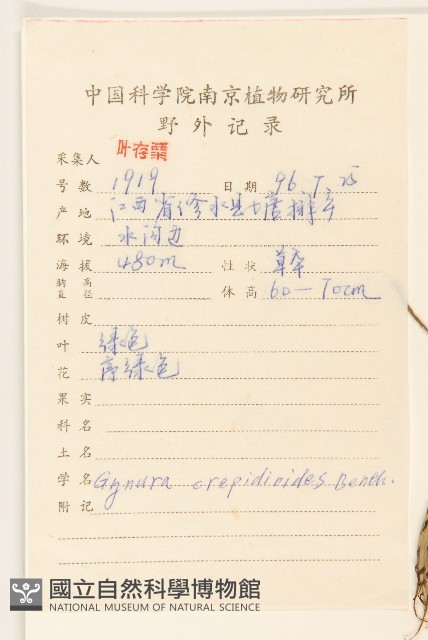 中国科学院南京植物研究所
野外记录
采集人 叶存粟
号数 1919 日期 96.
产地 江西省修水县
环境 水沟边
海拔 480m 性状 草本
胸高直径 体高 60—70cm
树皮
叶 绿色
花 绿色
果实
科名
土名
学名 Gynura crepidioides Benth.
附记
國立自然科學博物館
NATIONAL MUSEUM OF NATURAL SCIENCE